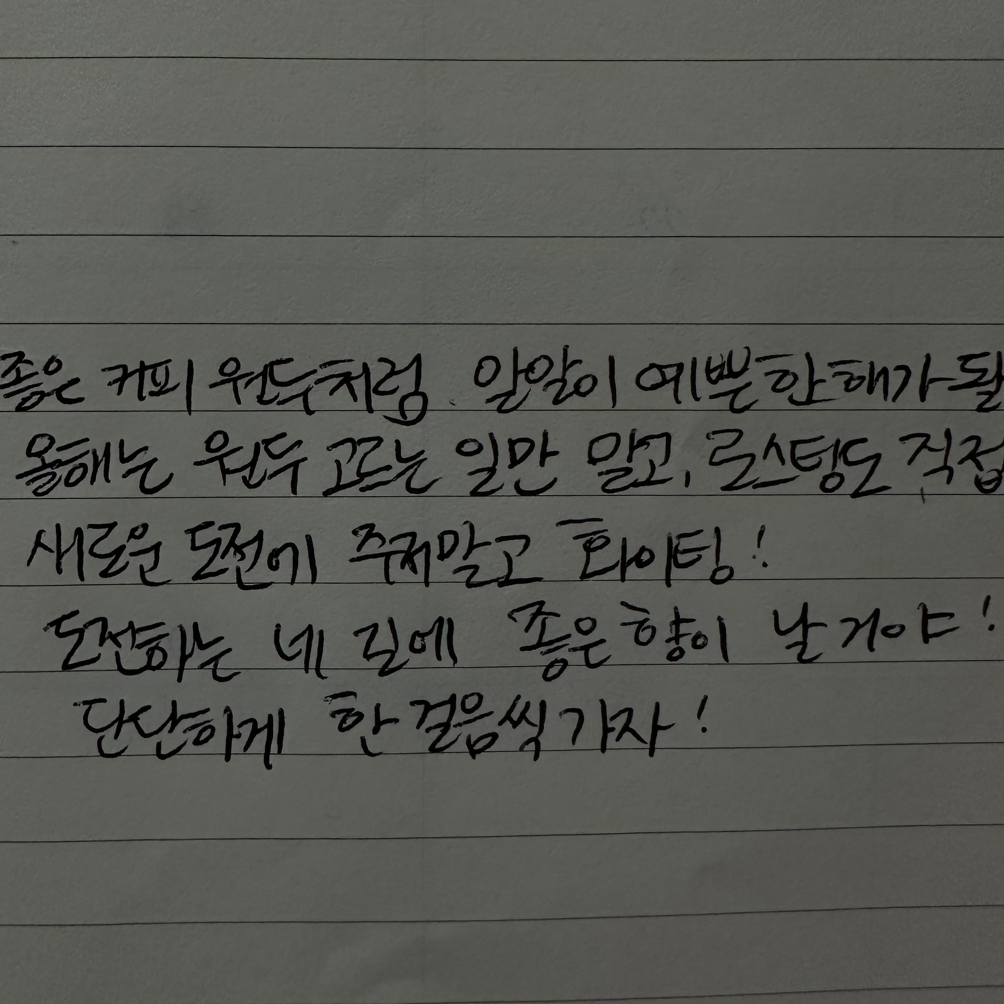 좋은 커피 원두처럼 알알이 예쁜 한 해가 될
올해는 원두 고르는 일만 말고, 로스팅도 직접
새로운 도전에 주저말고 화이팅!
도전하는 네 길에 좋은 향이 날거야!
단단하게 한 걸음씩 가자!